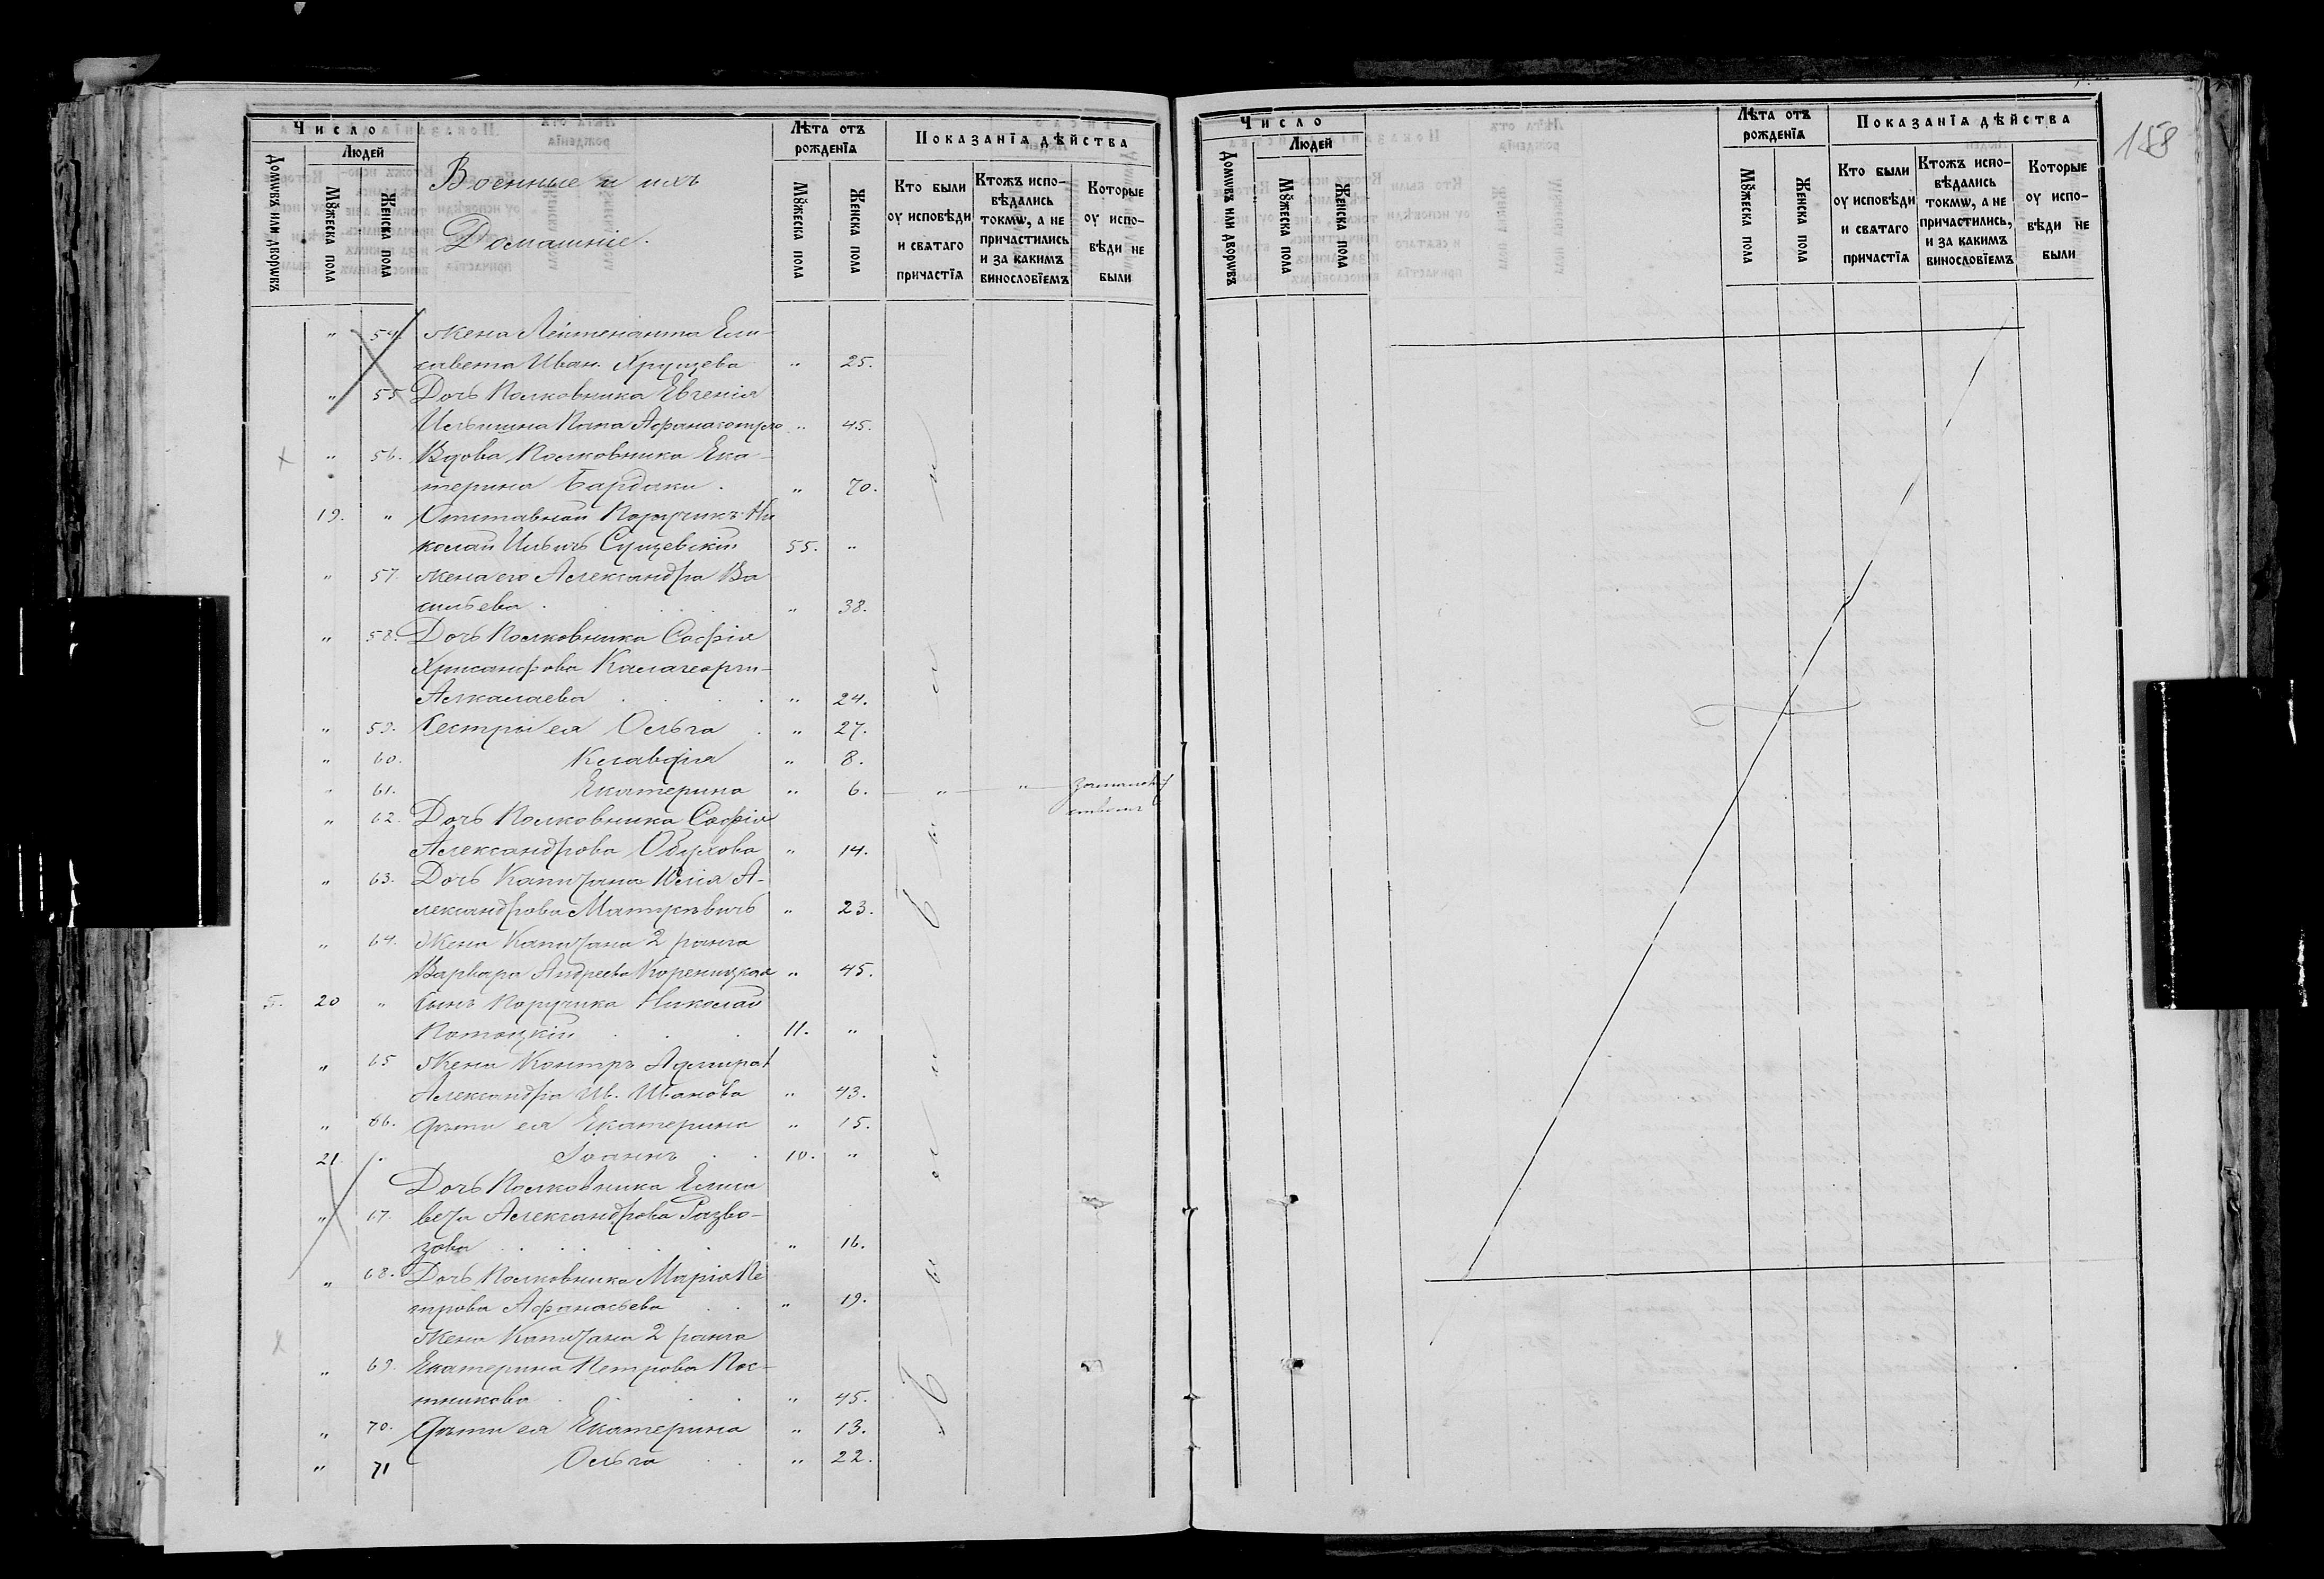 Число
Людей
Домѡвъ или дворѡвъ
Мꙋжеска пола
Женска пола
Военные и ихъ
Домашніе.
Лѣта отъ
рожденїя
Мꙋжеска пола
Женска пола
Показанїя дѣйства
Кто были
оу исповѣди
и свѧтаго
причастїѧ
Ктожъ испо-
вѣдались
токмѡ, а не
причастились
и за какимъ
винословїемъ
Которые
оу испо-
вѣди не
были
" 54. жена Лейтенанта Ели-
савета Иван. Хрущева " 25.
" 55 Дочь Полковника Евгенія
" 45.
" 56. Вдова Полковника Ека-
терина Бардаки. " 70.
19. " Отставной Поручикъ Ни
колай Ильичъ Сущевскій 55. "
" 57. жена его Александра Ва
сильева . " 38.
" 58. Дочь Полковника Софія
Хрисанфова Калагеорги-
Алкалаева . . . " 24.
" 59. Сестры ея Ольга . " 27.
" 60. Клавдія " 8.
" 61. Екатерина " 6. " "
" 62. Дочь Полковника Софія
Александрова Обухова " 14.
" 63. Дочь Капитана Юлія А-
лександрова Маткевичъ " 23.
" 64. Жена Капитана 2 ранга
Варвара Андреева Кореницкая " 45.
5. 20 " Сынъ Поручика Николай
Потоцкій . . . 11. "
" 65 Жена Контръ Адмирал
Александра Ив. Иванова " 43.
" 66. Дѣти ея Екатерина " 15.
21. " Іоаннъ . . 10. "
Дочь Полковника Елиса
" 67. вета Александрова Разво-
зова . . . . . " 16.
" 68. Дочь Полковника Марія Пе
трова Афанасьева . . " 19.
Жена Капитана 2 ранга
" 69. Екатерина Петрова Пос-
тникова . . . . " 45.
" 70. Дѣти ея Екатерина " 13.
" 71 Ольга . . " 22.
Были
Были
Число
Людей
Домѡвъ или дворѡвъ
Мꙋжеска пола
Женска пола
Лѣта отъ
рожденїя
Мꙋжеска пола
Женска пола
Показанїя дѣйства
Кто были
оу исповѣди
и свѧтаго
причастїѧ
Ктожъ испо-
вѣдались
токмѡ, а не
причастились,
и за какимъ
винословїемъ
Которые
оу испо-
вѣди не
были
158